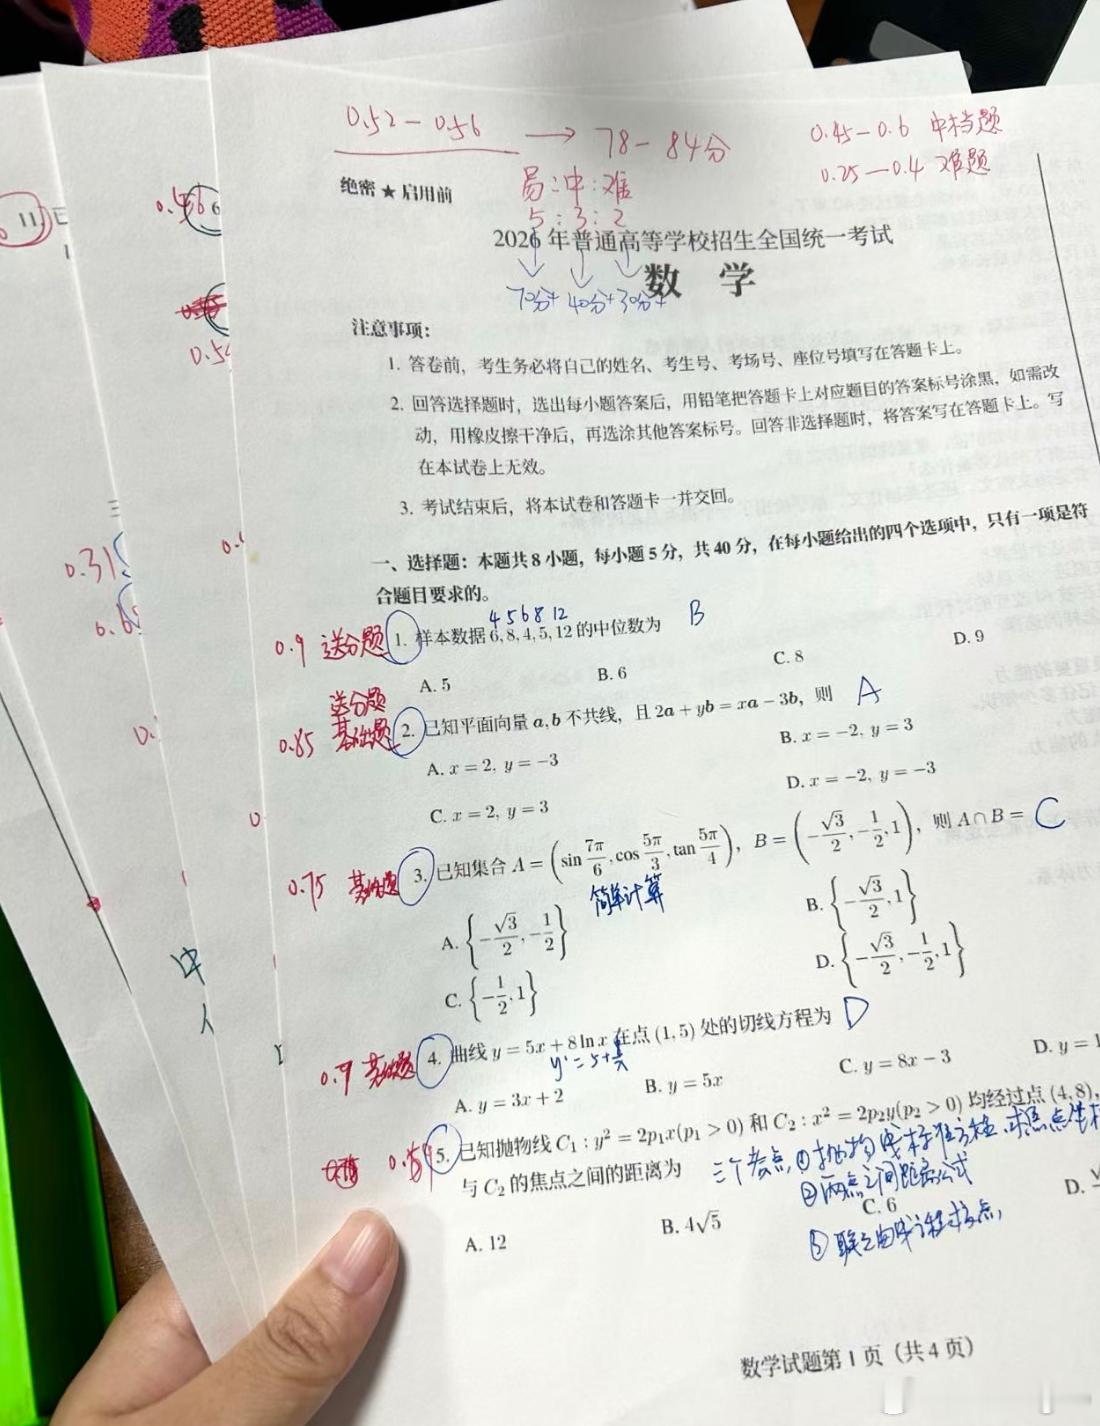 0.52-0.56 → 78-84分
0.45-0.6 中档题
0.25-0.4 难题
绝密★启用前
易:中:难
5:3:2
2026年普通高等学校招生全国统一考试
70分+ 40分+ 30分+
数 学
注意事项:
1. 答卷前,考生务必将自己的姓名、考生号、考场号、座位号填写在答题卡上。
2. 回答选择题时,选出每小题答案后,用铅笔把答题卡上对应题目的答案标号涂黑,如需改
动,用橡皮擦干净后,再选涂其他答案标号。回答非选择题时,将答案写在答题卡上。写
在本试卷上无效。
3. 考试结束后,将本试卷和答题卡一并交回。
一、选择题:本题共8小题,每小题5分,共40分,在每小题给出的四个选项中,只有一项是符
合题目要求的。
4 5 6 8 12
0.9 送分题 1. 样本数据6,8,4,5,12的中位数为 B
A. 5 B. 6 C. 8 D. 9
送分题
0.85 基础题 2. 已知平面向量a,b不共线,且2a+yb=xa-3b,则 A
A. x=2, y=-3 B. x=-2, y=3
C. x=2, y=3 D. x=-2, y=-3
0.75 基础题 3. 已知集合A=(sin 7π/6, cos 5π/3, tan 5π/4), B=(-√3/2, -1/2, 1), 则A∩B= C
简单计算
A. {-√3/2, -1/2} B. {-√3/2, 1}
C. {-1/2, 1} D. {-√3/2, -1/2, 1}
0.9 基础题 4. 曲线y=5x+8 ln x在点(1,5)处的切线方程为 D
A. y=3x+2 B. y=5x C. y=8x-3 D. y=1
5. 已知抛物线C₁:y²=2p₁x(p₁>0)和C₂:x²=2p₂y(p₂>0)均经过点(4,8),
与C₂的焦点之间的距离为
三个考点 ①抛物线标准方程,求焦点坐标
②两点之间距离公式
③联立曲线方程求交点,
A. 12 B. 4√5 C. 6 D. √
数学试题第1页(共4页)
11.
6
0.31
中